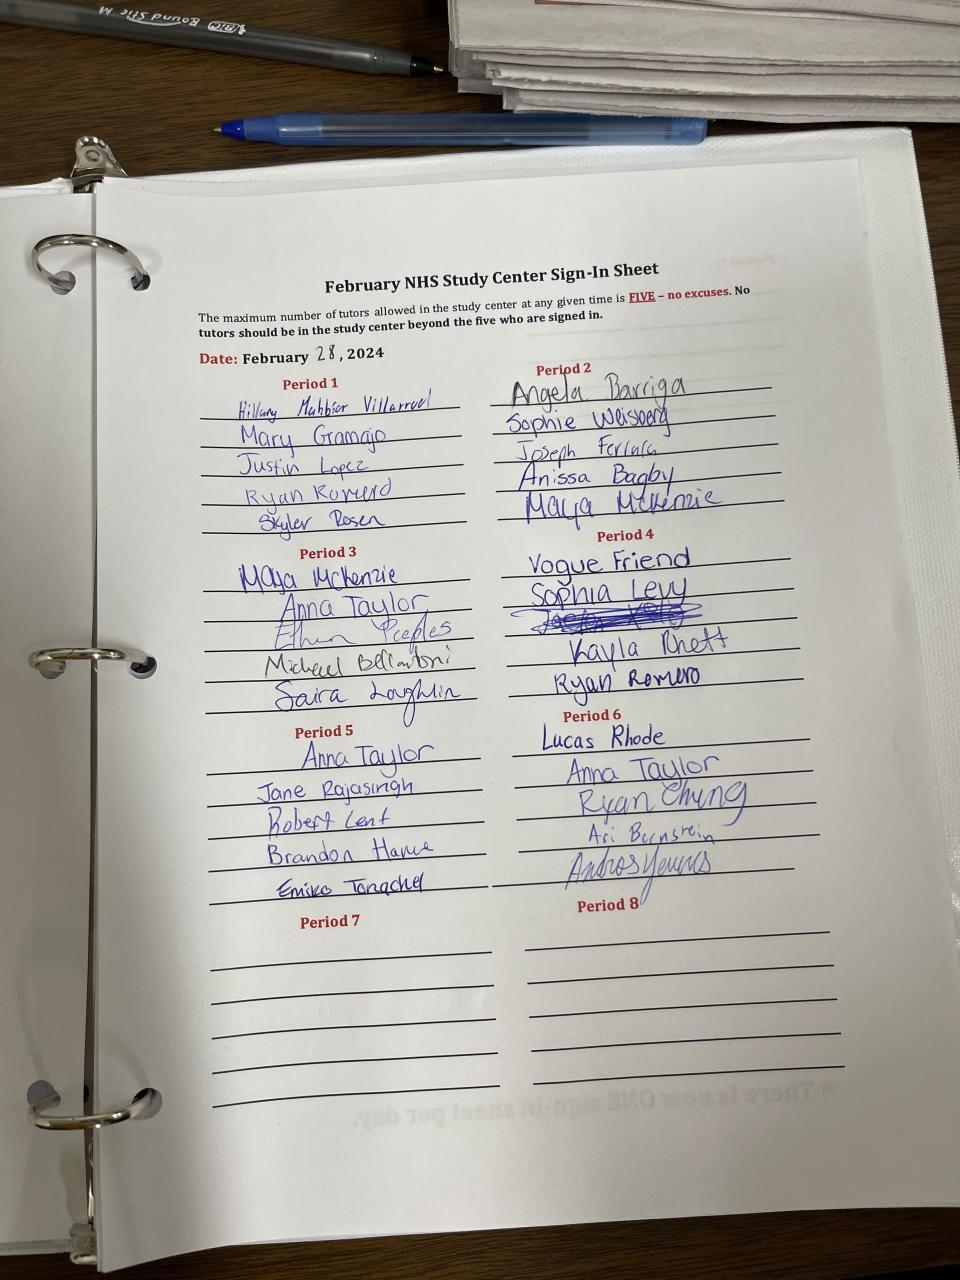 BIC Round Stic M
February NHS Study Center Sign-In Sheet
The maximum number of tutors allowed in the study center at any given time is FIVE – no excuses. No
tutors should be in the study center beyond the five who are signed in.
Date: February 28, 2024
Period 1
Hillary Villarruel
Mary Gramajo
Justin Lopez
Ryan Romero
Skyler Rosen
Period 2
Angela Barriga
Sophie Weisberg
Joseph
Anissa Bagby
Maya McKenzie
Period 3
Maya McKenzie
Anna Taylor
Ethan Peeples
Michael Bellantoni
Saira Loughlin
Period 4
Vogue Friend
Sophia Levy
Kayla Rhett
Ryan Romero
Period 5
Anna Taylor
Jane Rajasingh
Robert Lent
Brandon
Emiko
Period 6
Lucas Rhode
Anna Taylor
Ryan Chung
Ari Bernstein
Andros
Period 7
Period 8
★ There is now ONE sign-in sheet per day.